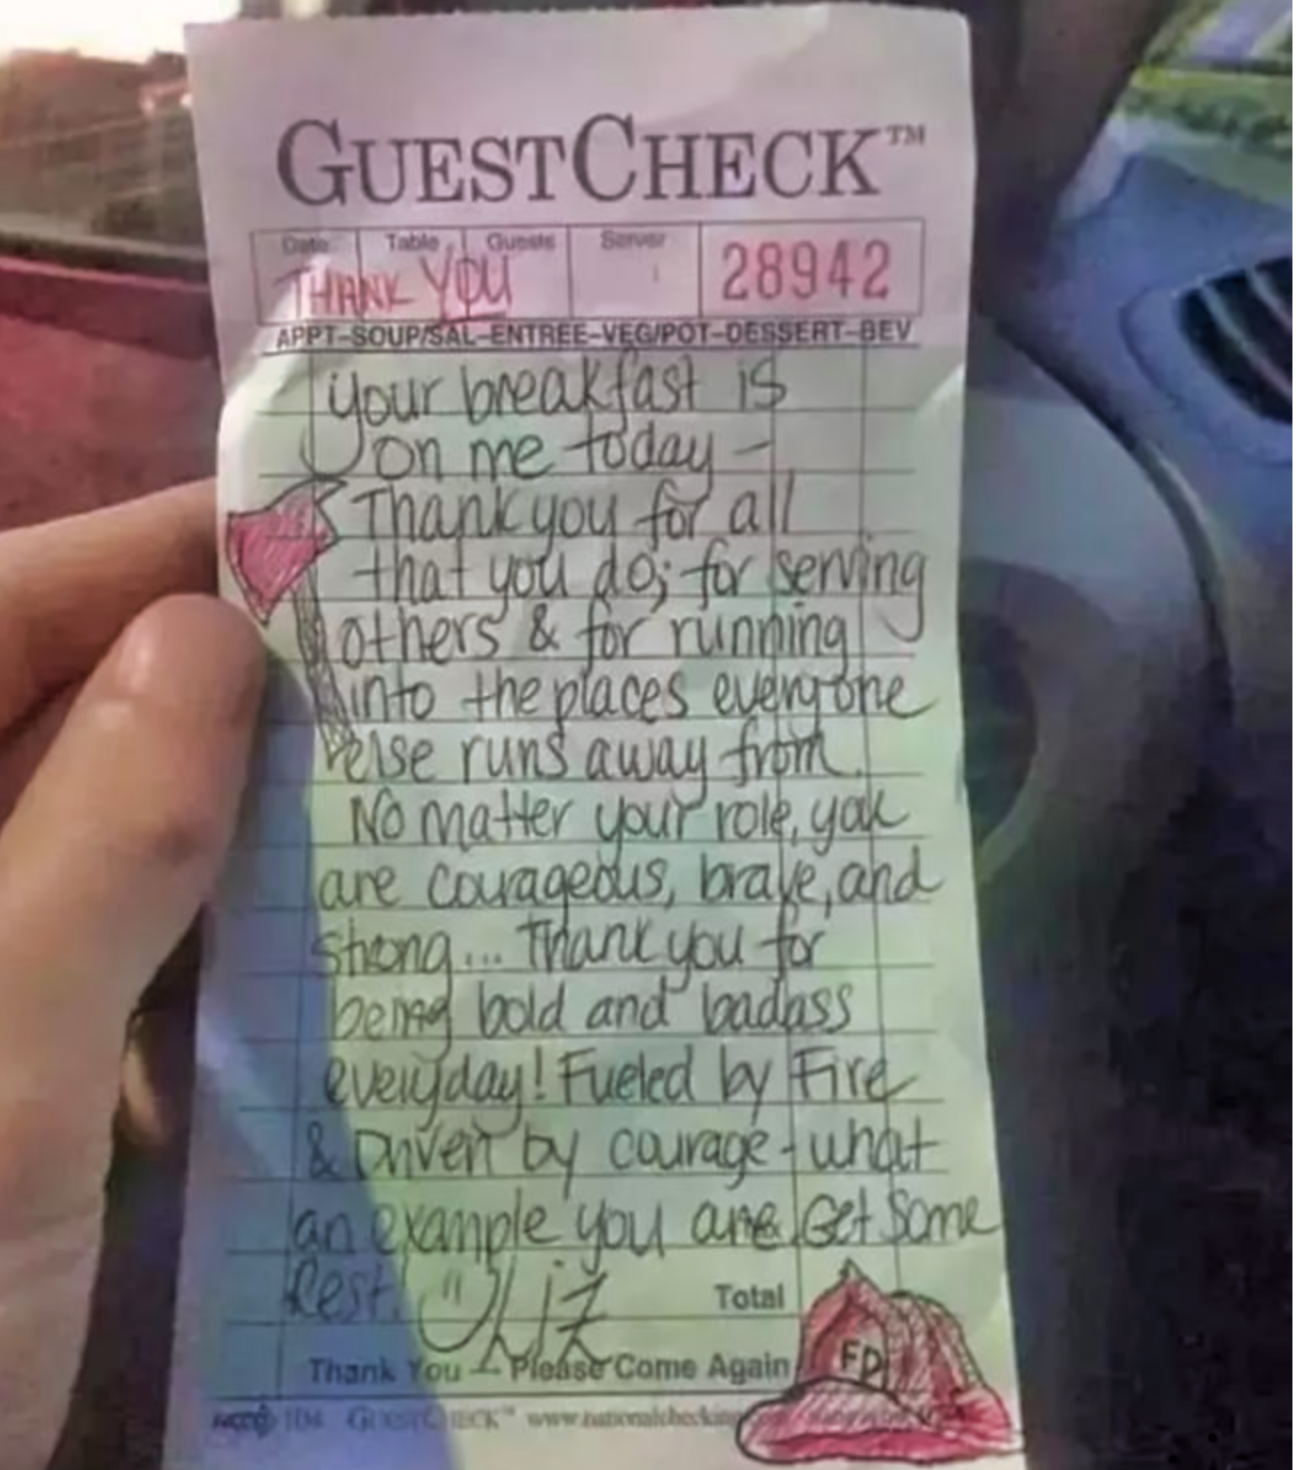 GUESTCHECK™
Date Table Guests Server
THANK YOU 28942
APPT-SOUP/SAL-ENTREE-VEG/POT-DESSERT-BEV
your breakfast is
on me today -
Thank you for all
that you do; for serving
others & for running
into the places everyone
else runs away from.
No matter your role, you
are courageous, brave, and
strong... Thank you for
being bold and badass
everyday! Fueled by Fire
& Driven by courage - what
an example you are. Get Some
Rest! Liz
Total
FD
Thank You — Please Come Again
104 GUESTCHECK™ www.nationalchecking